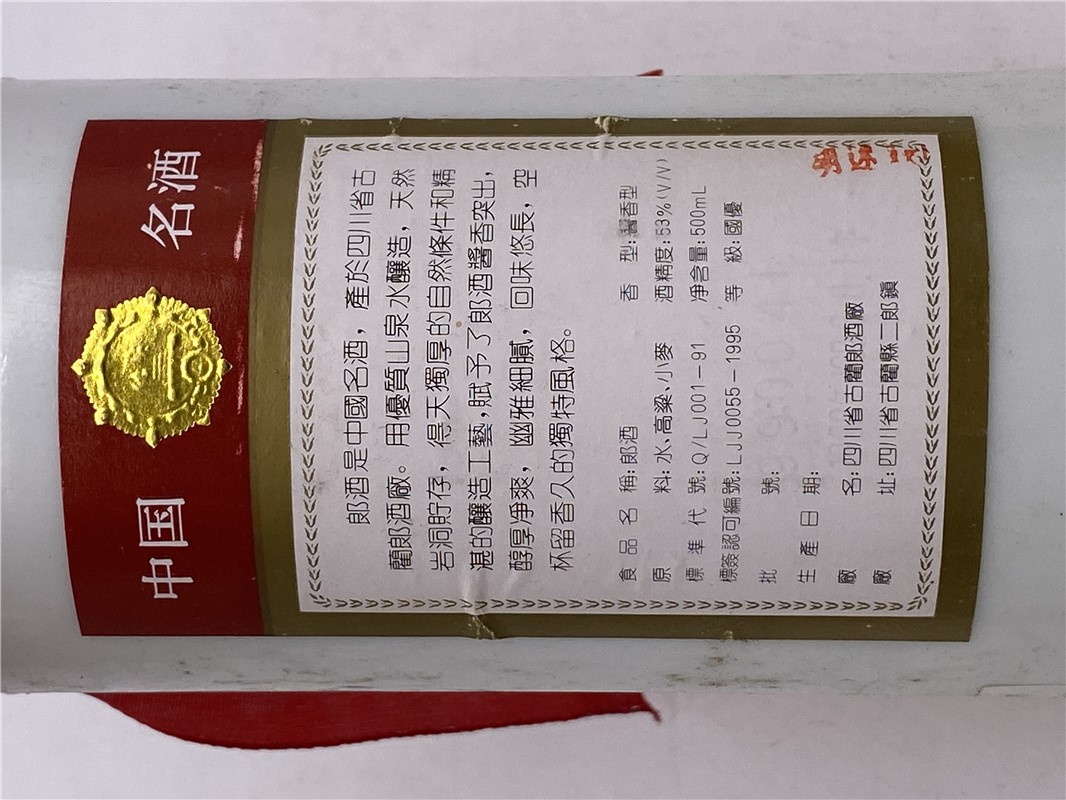 中国 名酒
郎酒是中國名酒，產於四川省古
藺郎酒廠。用優質山泉水釀造，天然
岩洞貯存，得天獨厚的自然條件和精
湛的釀造工藝，賦予了郎酒醬香突出，
醇厚凈爽，幽雅細膩，回味悠長，空
杯留香久的獨特風格。
食品名稱：郎酒 香型：醬香型
原料：水、高粱、小麥 酒精度：53%(V/V)
標準代號：Q/LJ001－91 净含量：500mL
標簽認可編號：LJJ0055－1995 等級：國優
批號：
生產日期：
廠名：四川省古藺郎酒廠
廠址：四川省古藺縣二郎鎮